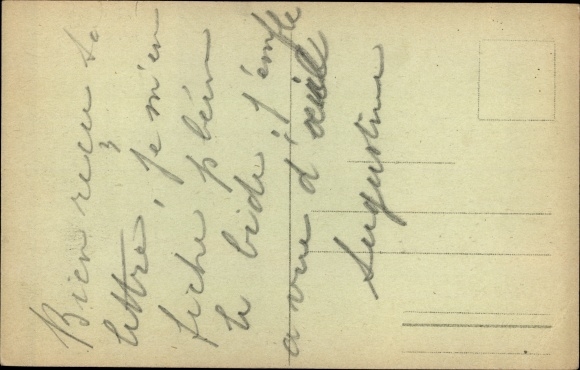 Bien reçu ta
lettre, je m'en
fiche plein
le bide, j'enfle
a vue d'œil
Augustine